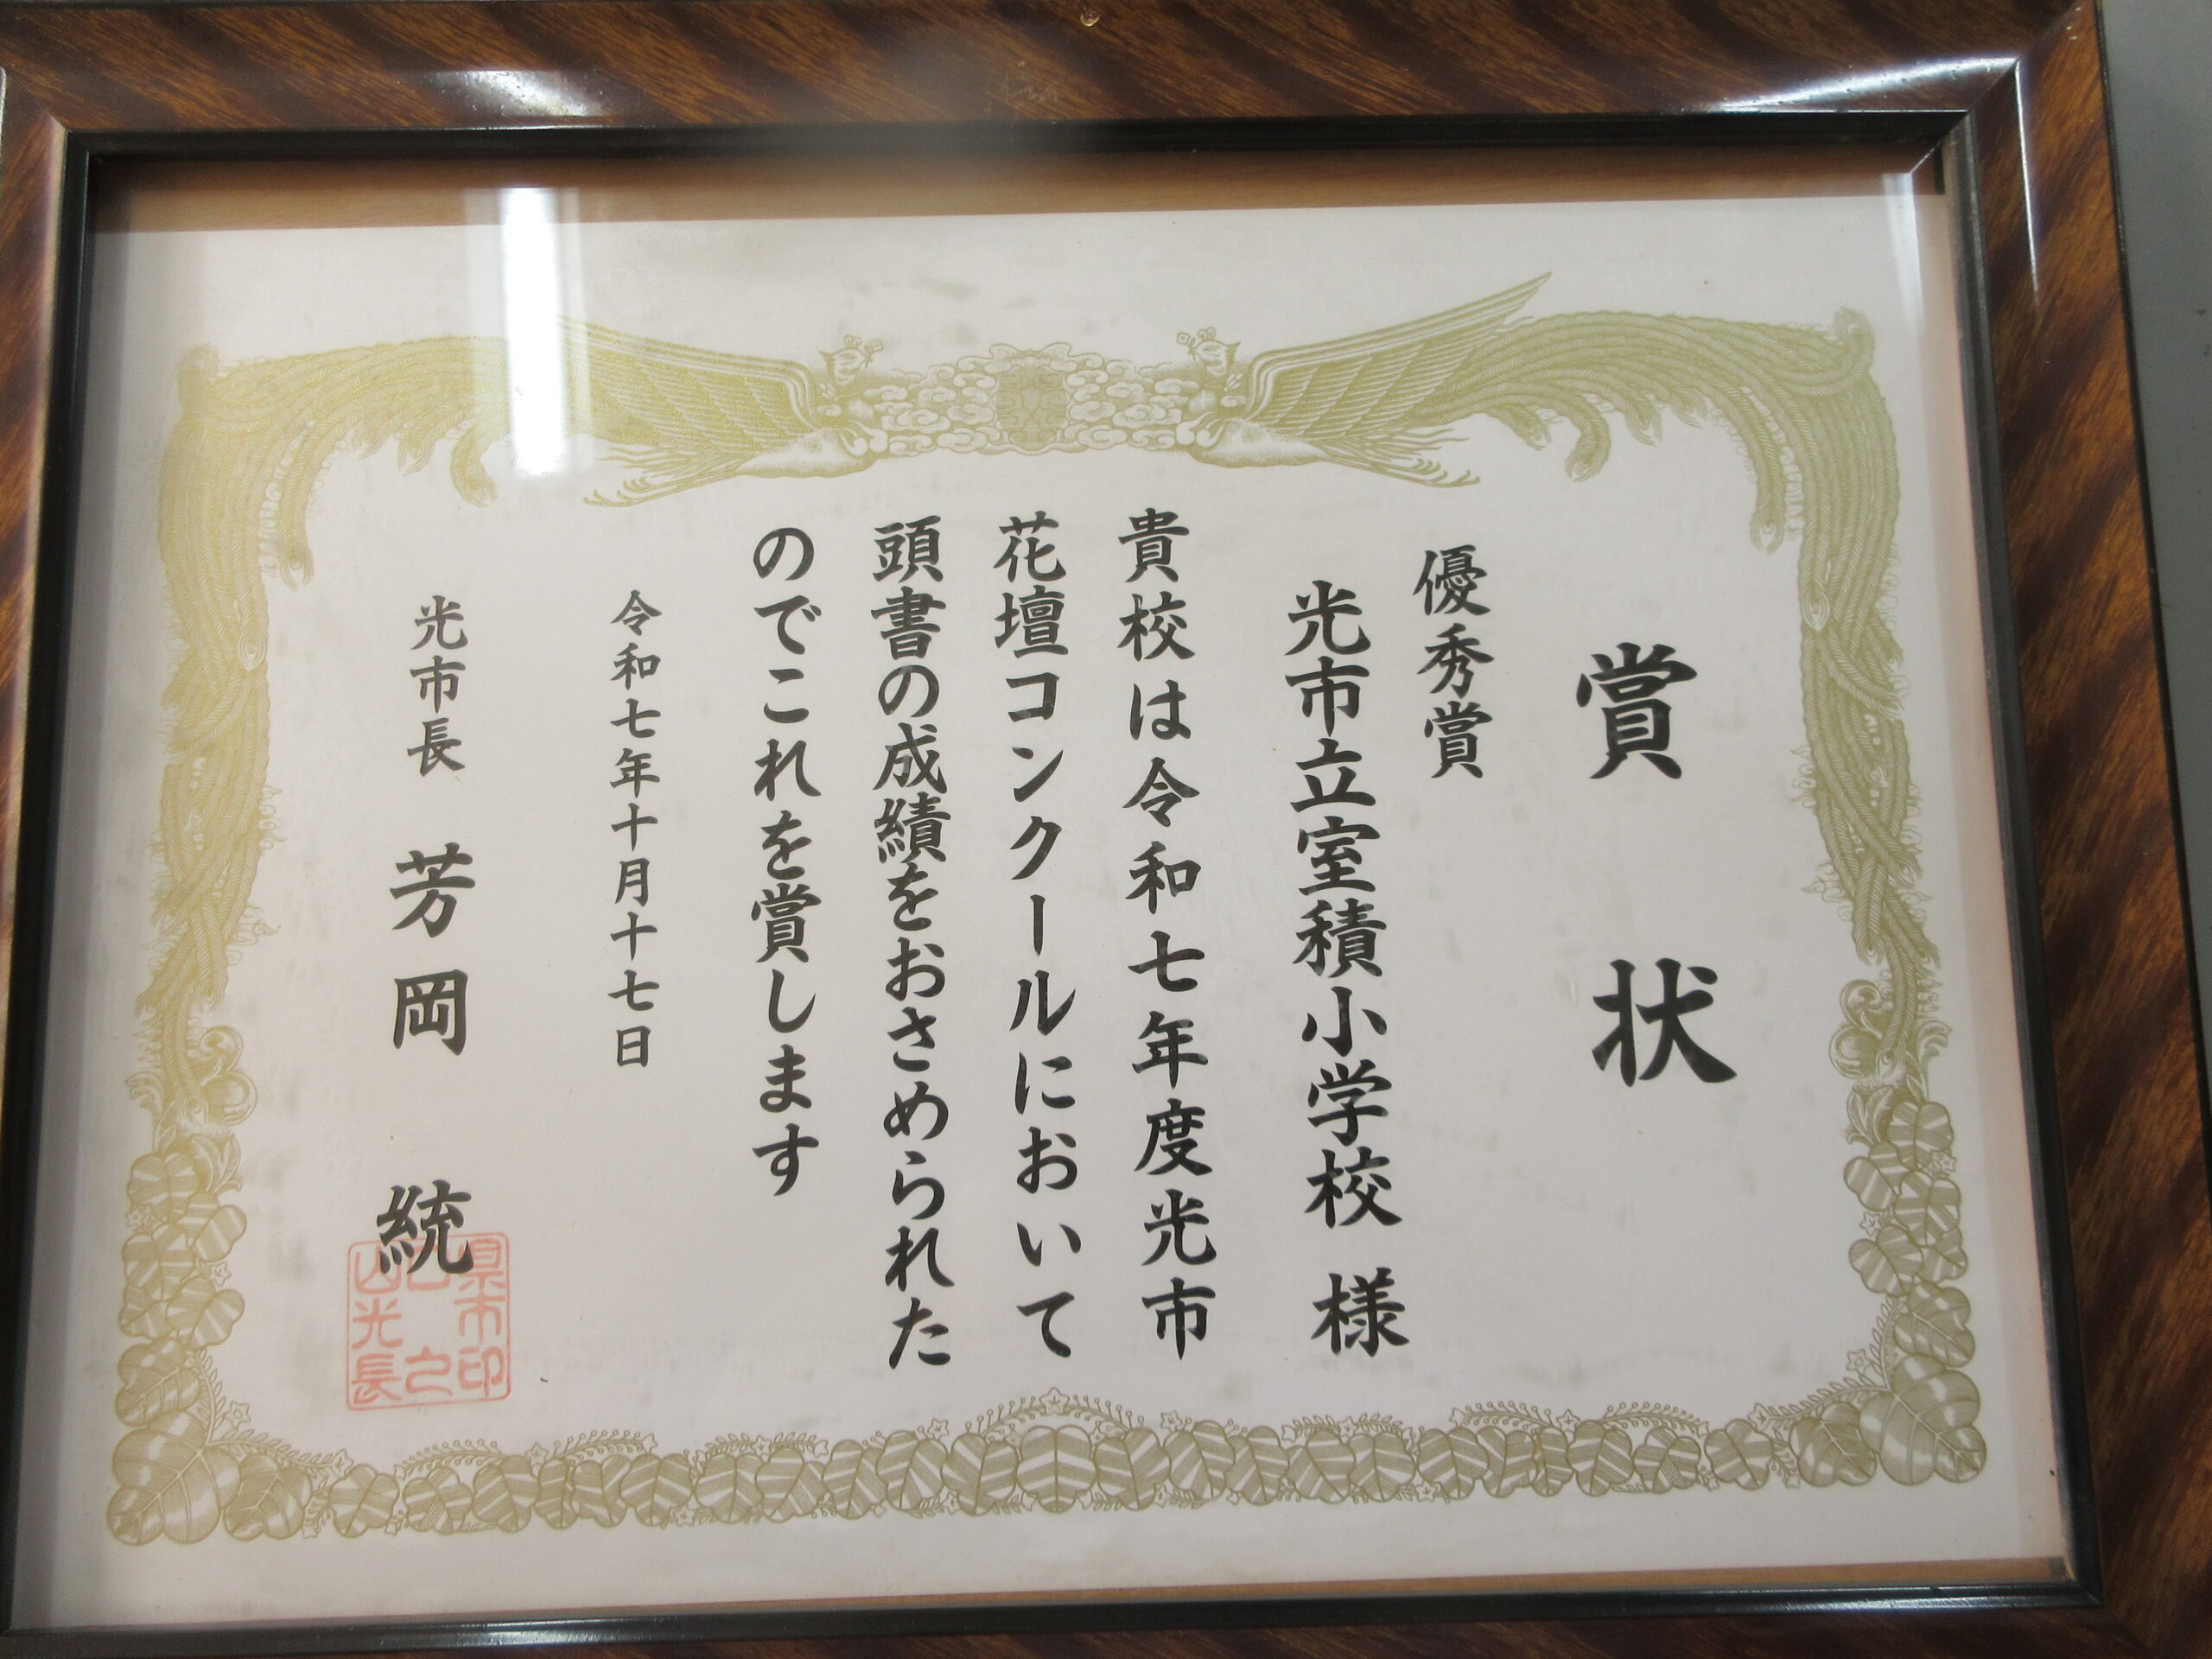 賞状
優秀賞
光市立室積小学校 様
貴校は令和七年度光市
花壇コンクールにおいて
頭書の成績をおさめられた
のでこれを賞します
令和七年十月十七日
光市長 芳岡 統
山口県
光市
長之印